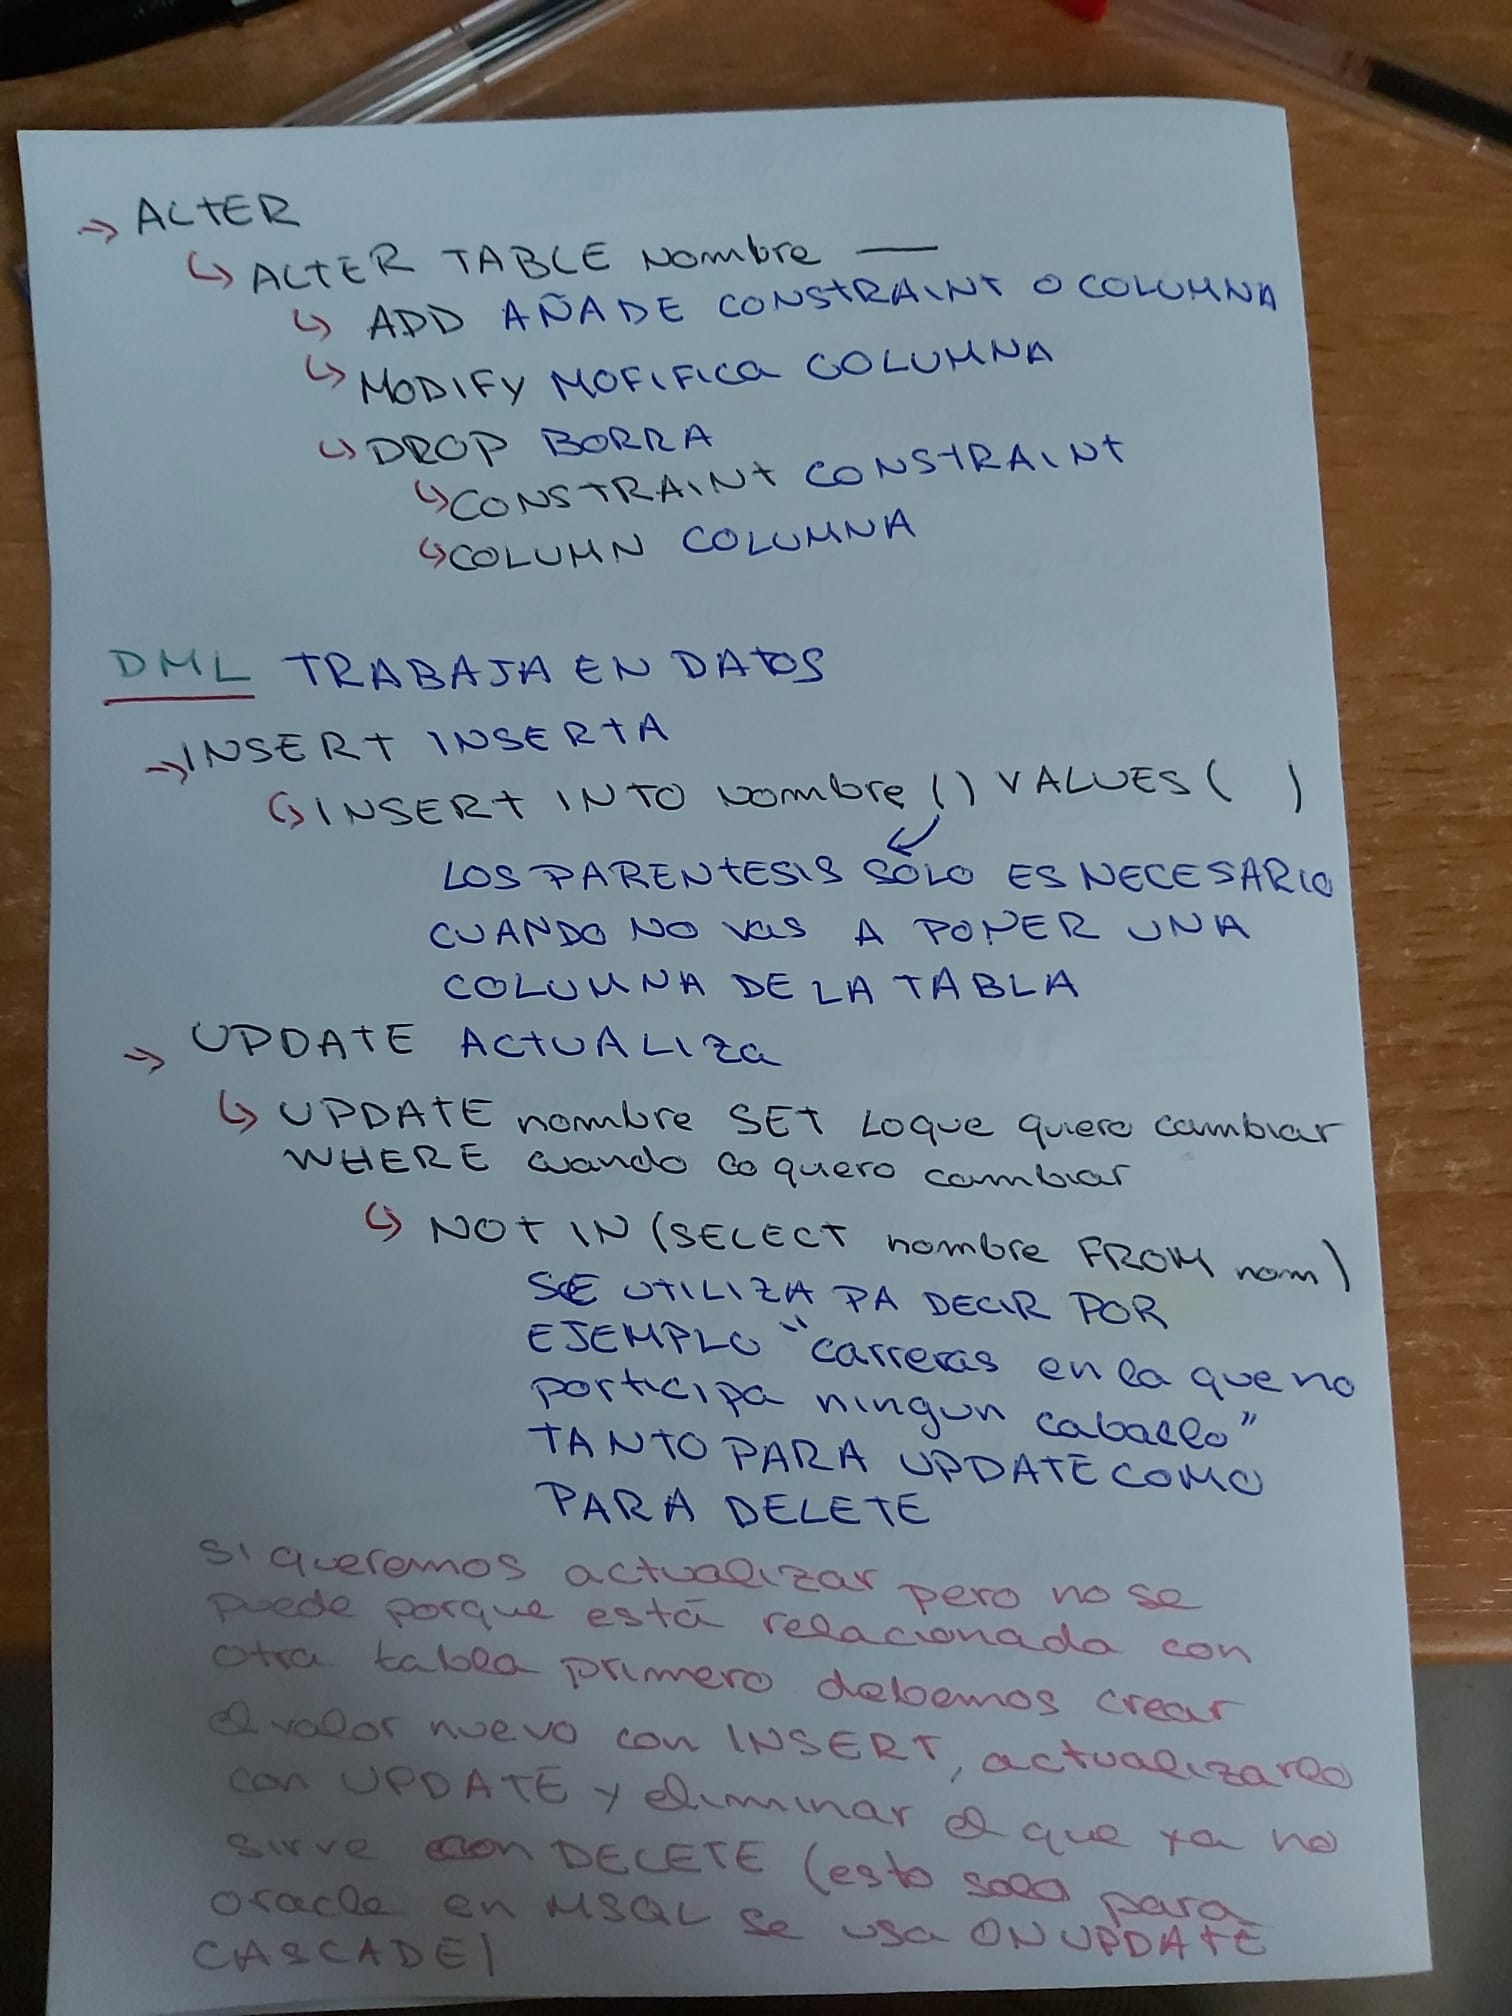 → ALTER
↳ ALTER TABLE Nombre —
↳ ADD AÑADE CONSTRAINT O COLUMNA
↳ MODIFY MOFIFICA COLUMNA
↳ DROP BORRA
↳ CONSTRAINT CONSTRAINT
↳ COLUMN COLUMNA
DML TRABAJA EN DATOS
→ INSERT INSERTA
↳ INSERT INTO Nombre () VALUES ( )
LOS PARENTESIS SOLO ES NECESARIO
CUANDO NO vas A PONER UNA
COLUMNA DE LA TABLA
→ UPDATE ACTUALIZA
↳ UPDATE nombre SET Lo que quiero cambiar
WHERE cuando lo quero cambiar
↳ NOT IN (SELECT nombre FROM nom)
SE UTILIZA PA DECIR POR
EJEMPLO "carreras en la que no
participa ningun caballo"
TANTO PARA UPDATE COMO
PARA DELETE
Si queremos actualizar pero no se
puede porque está relacionada con
otra tabla primero debemos crear
el valor nuevo con INSERT, actualizarlo
con UPDATE y eliminar el que ya no
sirve con DELETE (esto solo para
oracle en MSQL se usa ON UPDATE
CASCADE)